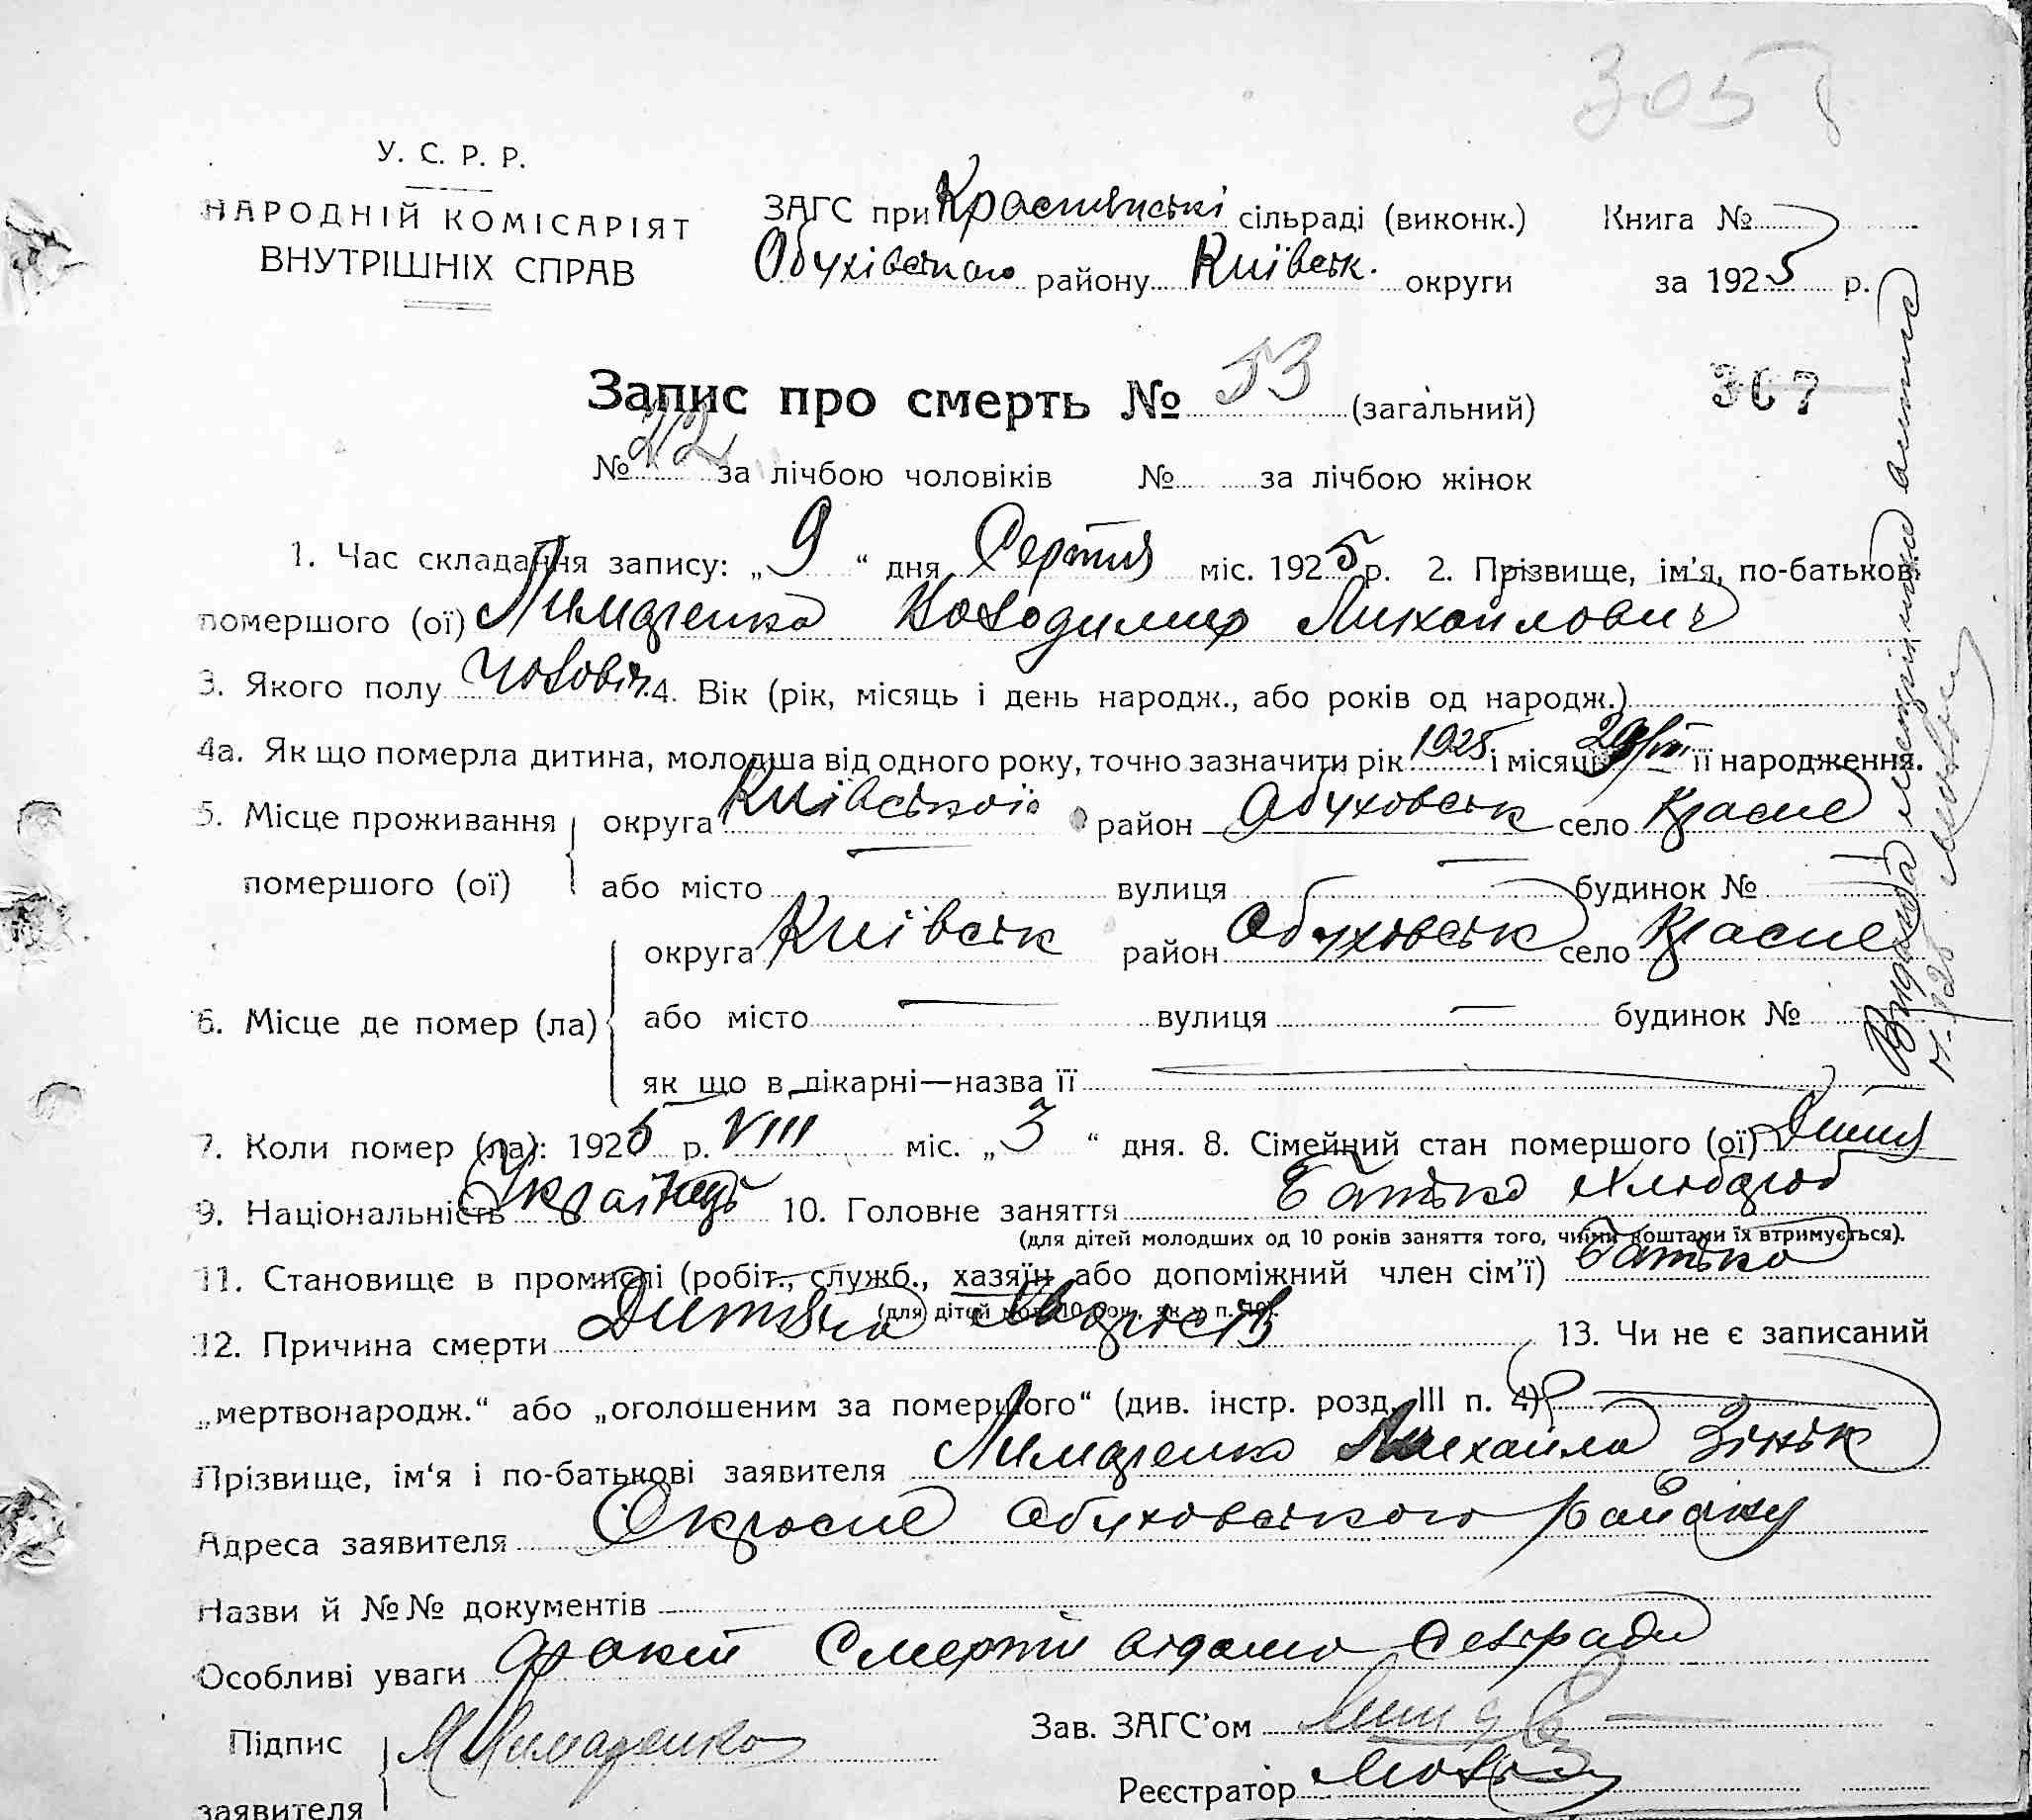 305
У. С. Р. Р.
НАРОДНІЙ КОМІСАРІЯТ
ВНУТРІШНІХ СПРАВ
ЗАГС при сільраді (виконк.) Книга №
Обухівського району Київськ. округи за 1925 р.
Запис про смерть № 53 (загальний) 367
№ 22 за лічбою чоловіків № за лічбою жінок
1. Час складання запису: „ 9 “ дня Серпня міс. 1925 р. 2. Прізвище, ім'я, по-батькові
помершого (ої) Володимир Михайлович
3. Якого полу Чоловіч. 4. Вік (рік, місяць і день народж., або років од народж.)
4а. Як що померла дитина, молодша від одного року, точно зазначити рік 1925 і місяць її народження.
5. Місце проживання округа Київської район Обуховськ село Красне
помершого (ої) або місто — вулиця — будинок № —
округа Київськ район Обуховськ село Красне
6. Місце де помер (ла) або місто — вулиця — будинок №
як що в лікарні—назва її
7. Коли помер (ла): 1925 р. VIII міс. „ 3 “ дня. 8. Сімейний стан помершого (ої) Дитя
9. Національність Українець 10. Головне заняття Батько Хлібороб
(для дітей молодших од 10 років заняття того, чиїми коштами їх втримується).
11. Становище в промислі (робіт., служб., хазяїн або допоміжний член сім'ї) Батько
(для дітей мол. 10 рок. як у п. 10).
12. Причина смерти 13. Чи не є записаний
„мертвонародж.“ або „оголошеним за помершого“ (див. інстр. розд. III п. 4)
Прізвище, ім'я і по-батькові заявителя Михайло
Адреса заявителя С Красне Обуховського Району
Назви й №№ документів
Особливі уваги Факт Смерти відомо Сельради
Підпис Зав. ЗАГС'ом
Реєстратор
заявителя